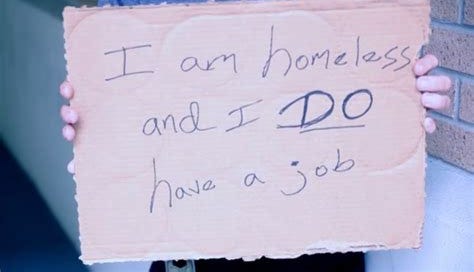 I am homeless
and I DO
have a job